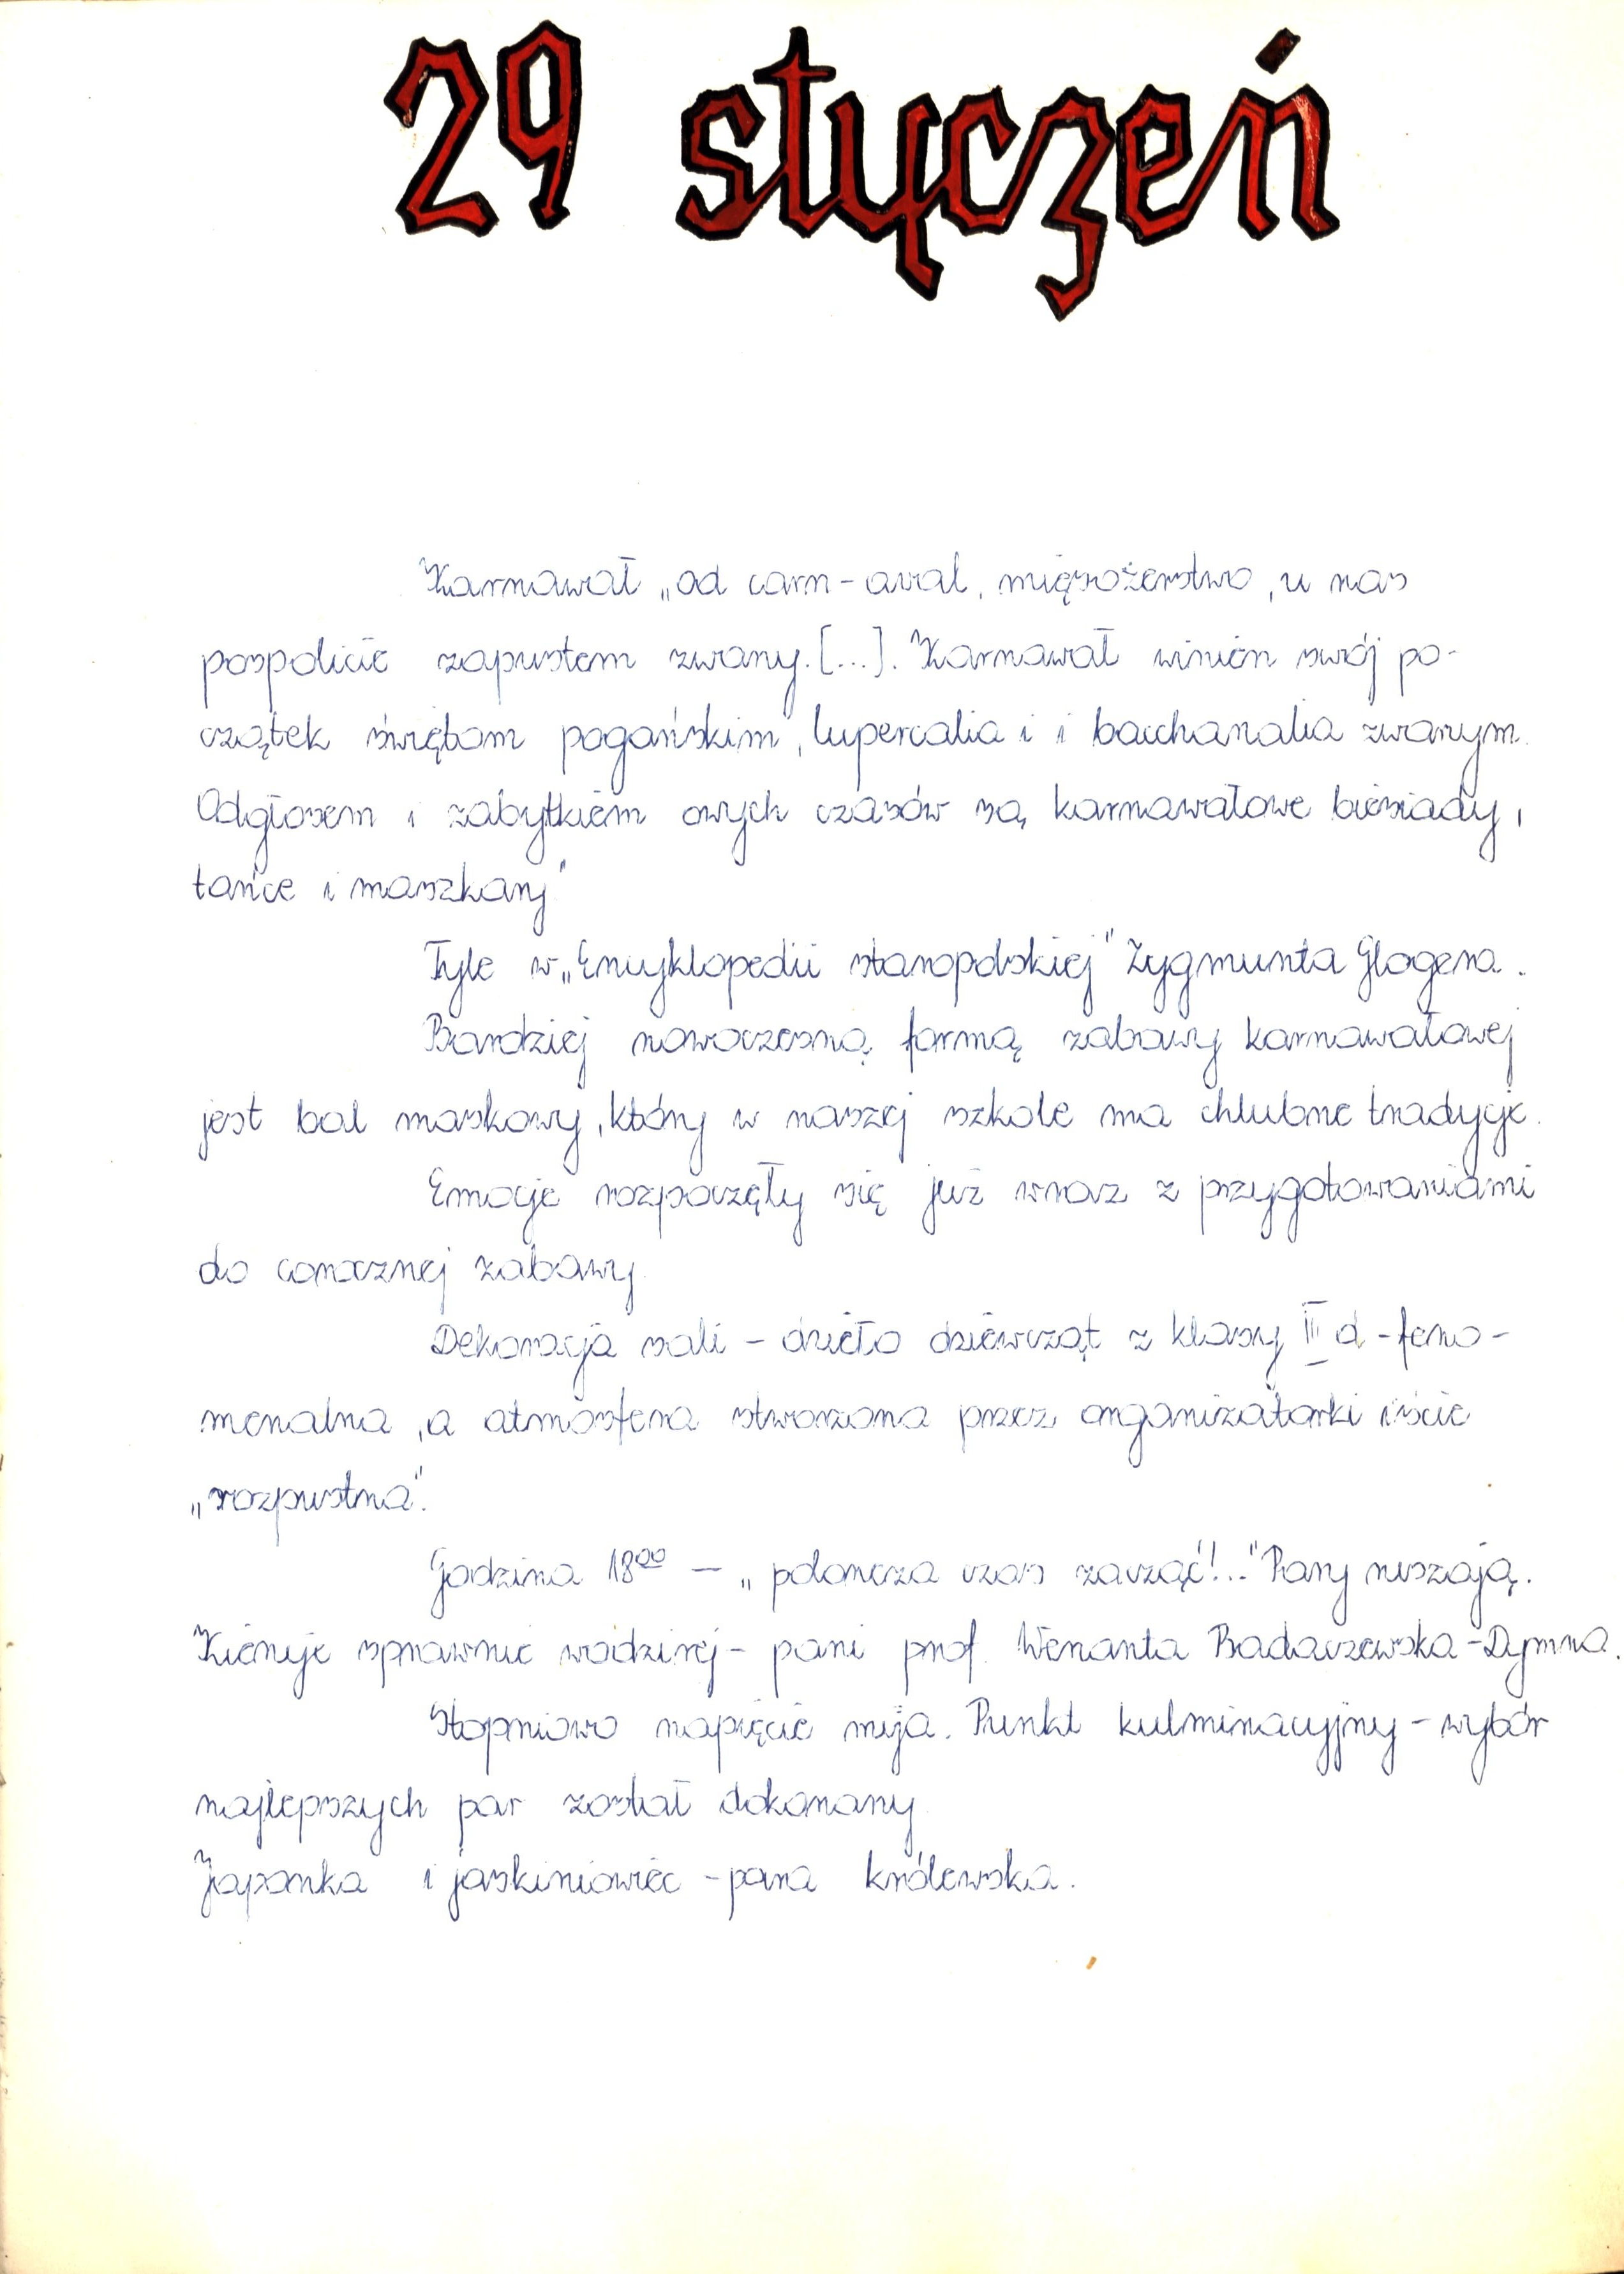 29 styczeń
Karnawał „od carn-aval, mięsożerstwo, u nas
pospolicie zapustem zwany. [...]. Karnawał winien swój po-
czątek świętom pogańskim, lupercalia i i bacchanalia zwanym.
Odgłosem i zabytkiem owych czasów są karnawałowe biesiady,
tańce i maszkary"
Tyle w „Encyklopedii staropolskiej" Zygmunta Glogera.
Bardziej nowoczesną formą zabawy karnawałowej
jest bal maskowy, który w naszej szkole ma chlubne tradycje.
Emocje rozpoczęły się już wraz z przygotowaniami
do corocznej zabawy.
Dekoracja sali - dzieło dziewcząt z klasy III d - feno-
menalna, a atmosfera stworzona przez organizatorki iście
„rozpustna".
Godzina 18⁰⁰ — „poloneza czas zacząć!..." Pary ruszają.
Kieruje sprawnie wodzirej - pani prof. Weranta Badaczewska-Dymna.
Stopniowo napięcie mija. Punkt kulminacyjny - wybór
najlepszych par został dokonany.
Japonka i jaskiniowiec - para królewska.